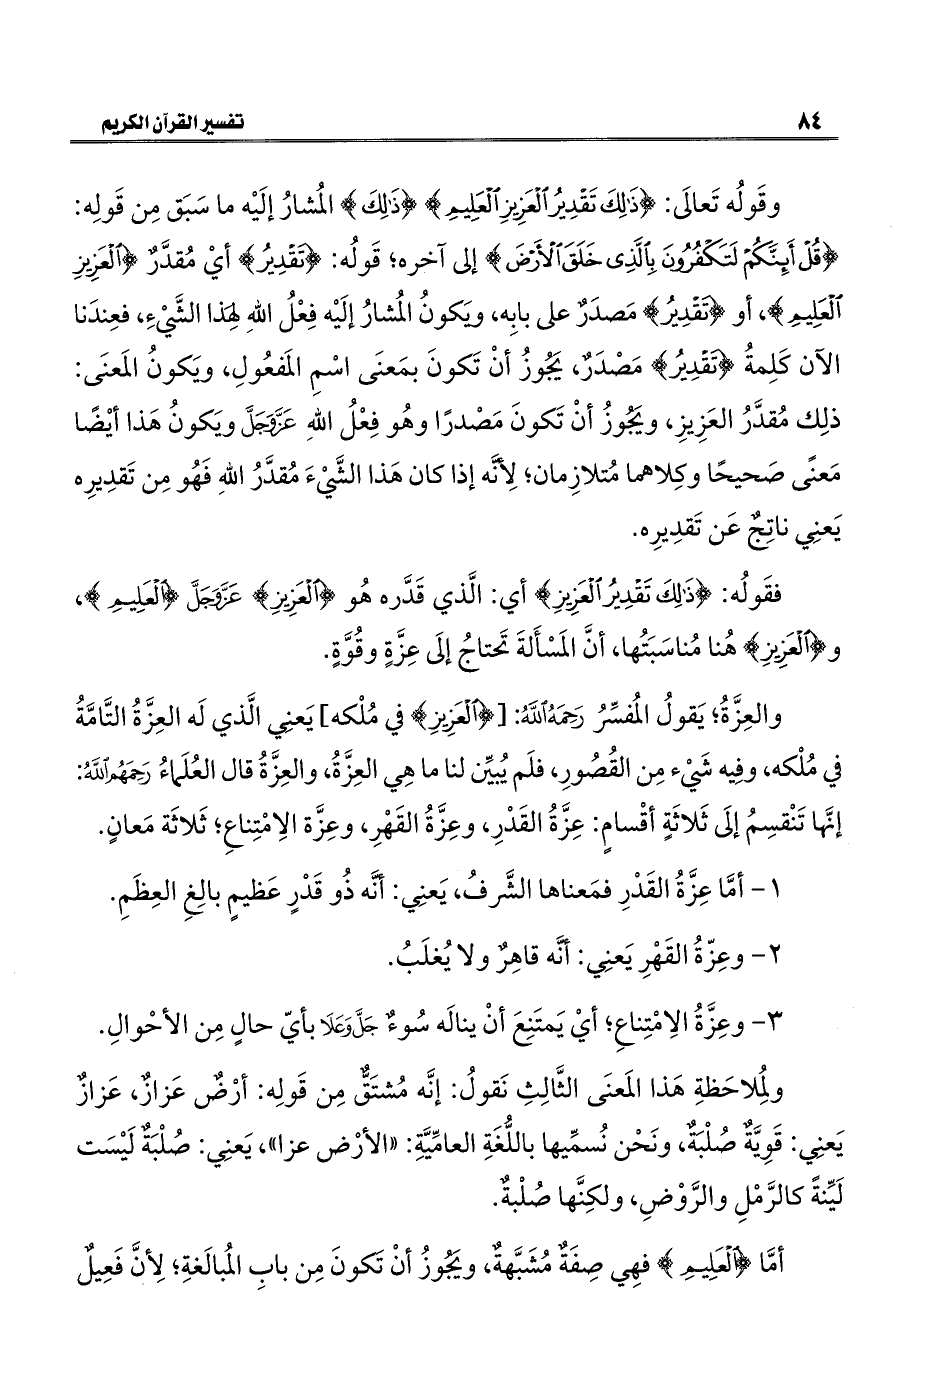 ٨٤
تفسير القرآن الكريم
وقَولُه تَعالَى: ﴿ذَٰلِكَ تَقْدِيرُ ٱلْعَزِيزِ ٱلْعَلِيمِ﴾ ﴿ذَٰلِكَ﴾ المُشارُ إلَيْه ما سَبَق مِن قَولِه:
﴿قُلْ أَئِنَّكُمْ لَتَكْفُرُونَ بِٱلَّذِى خَلَقَ ٱلْأَرْضَ﴾ إلى آخره؛ قَولُه: ﴿تَقْدِيرُ﴾ أيْ مُقدَّرُ ﴿ٱلْعَزِيزِ
ٱلْعَلِيمِ﴾، أو ﴿تَقْدِيرُ﴾ مَصدَرٌ على بابِه، ويَكونُ المُشارُ إلَيْه فِعْلُ اللهِ لهِذا الشَّيْءِ، فعِندَنا
الآن كَلِمةُ ﴿تَقْدِيرُ﴾ مَصْدَرٌ، يَجُوزُ أنْ تَكونَ بمَعنَى اسْمِ المَفْعولِ، ويَكونُ المَعنَى:
ذلِك مُقدَّرُ العَزيزِ، ويَجُوزُ أنْ تَكونَ مَصْدرًا وهُو فِعْلُ اللهِ عَزَّوَجَلَّ ويَكونُ هَذا أيْضًا
مَعنًى صَحيحًا وكِلاهما مُتلازِمان؛ لِأنَّه إذا كان هَذا الشَّيْءَ مُقدَّرُ اللهِ فَهُو مِن تَقديرِه
يَعنِي ناتِجٌ عَن تَقديرِه.
فقَولُه: ﴿ذَٰلِكَ تَقْدِيرُ ٱلْعَزِيزِ﴾ أي: الَّذي قَدَّره هُو ﴿ٱلْعَزِيزِ﴾ عَزَّوَجَلَّ ﴿ٱلْعَلِيمِ﴾،
و﴿ٱلْعَزِيزِ﴾ هُنا مُناسَبَتُها، أنَّ المَسْألَةَ تَحتاجُ إلَى عِزَّةٍ وقُوَّةٍ.
والعِزَّةُ؛ يَقولُ المُفسِّرُ رَحِمَهُ اللَّهُ: [﴿ٱلْعَزِيزِ﴾ في مُلْكه] يَعنِي الَّذي لَه العِزَّةُ التَّامَّةُ
في مُلْكه، وفِيه شَيْء مِن القُصُورِ، فلَم يُبيِّن لنا ما هِي العِزَّةُ، والعِزَّةُ قال العُلَماءُ رَحِمَهُمُ اللَّهُ:
إنَّها تَنْقسِمُ إلَى ثَلاثةِ أقْسامٍ: عِزَّةُ القَدْرِ، وعِزَّةُ القَهْرِ، وعِزَّة الِامْتِناعِ؛ ثَلاثَة مَعانٍ.
١- أمَّا عِزَّةُ القَدْرِ فمَعناها الشَّرفُ، يَعنِي: أنَّه ذُو قَدْرٍ عَظيمٍ بالِغِ العِظَمِ.
٢- وعِزّةُ القَهْرِ يَعنِي: أنَّه قاهِرٌ ولا يُغلَبُ.
٣- وعِزَّةُ الِامْتِناعِ؛ أيْ يَمتَنِعَ أنْ ينالَه سُوءٌ جَلَّ وَعَلَا بأيّ حالٍ مِن الأحْوالِ.
ولمُلاحَظةِ هَذا المَعنَى الثَّالِثِ نَقولُ: إنَّه مُشتَقٌّ مِن قَولِه: أرْضٌ عَزازٌ، عَزازٌ
يَعنِي: قَويَّةٌ صُلْبَةٌ، ونَحْن نُسمِّيها باللُّغَةِ العامِّيَّةِ: «الأرْض عزا»، يَعنِي: صُلْبَةٌ لَيْسَت
لَيِّنةً كالرَّمْلِ والرَّوْضِ، ولكِنَّها صُلْبةٌ.
أمَّا ﴿ٱلْعَلِيمِ﴾ فهِي صِفَةٌ مُشَبَّهةٌ، ويَجُوزُ أنْ تَكونَ مِن بابِ المُبالَغةِ؛ لِأنَّ فَعِيلٌ